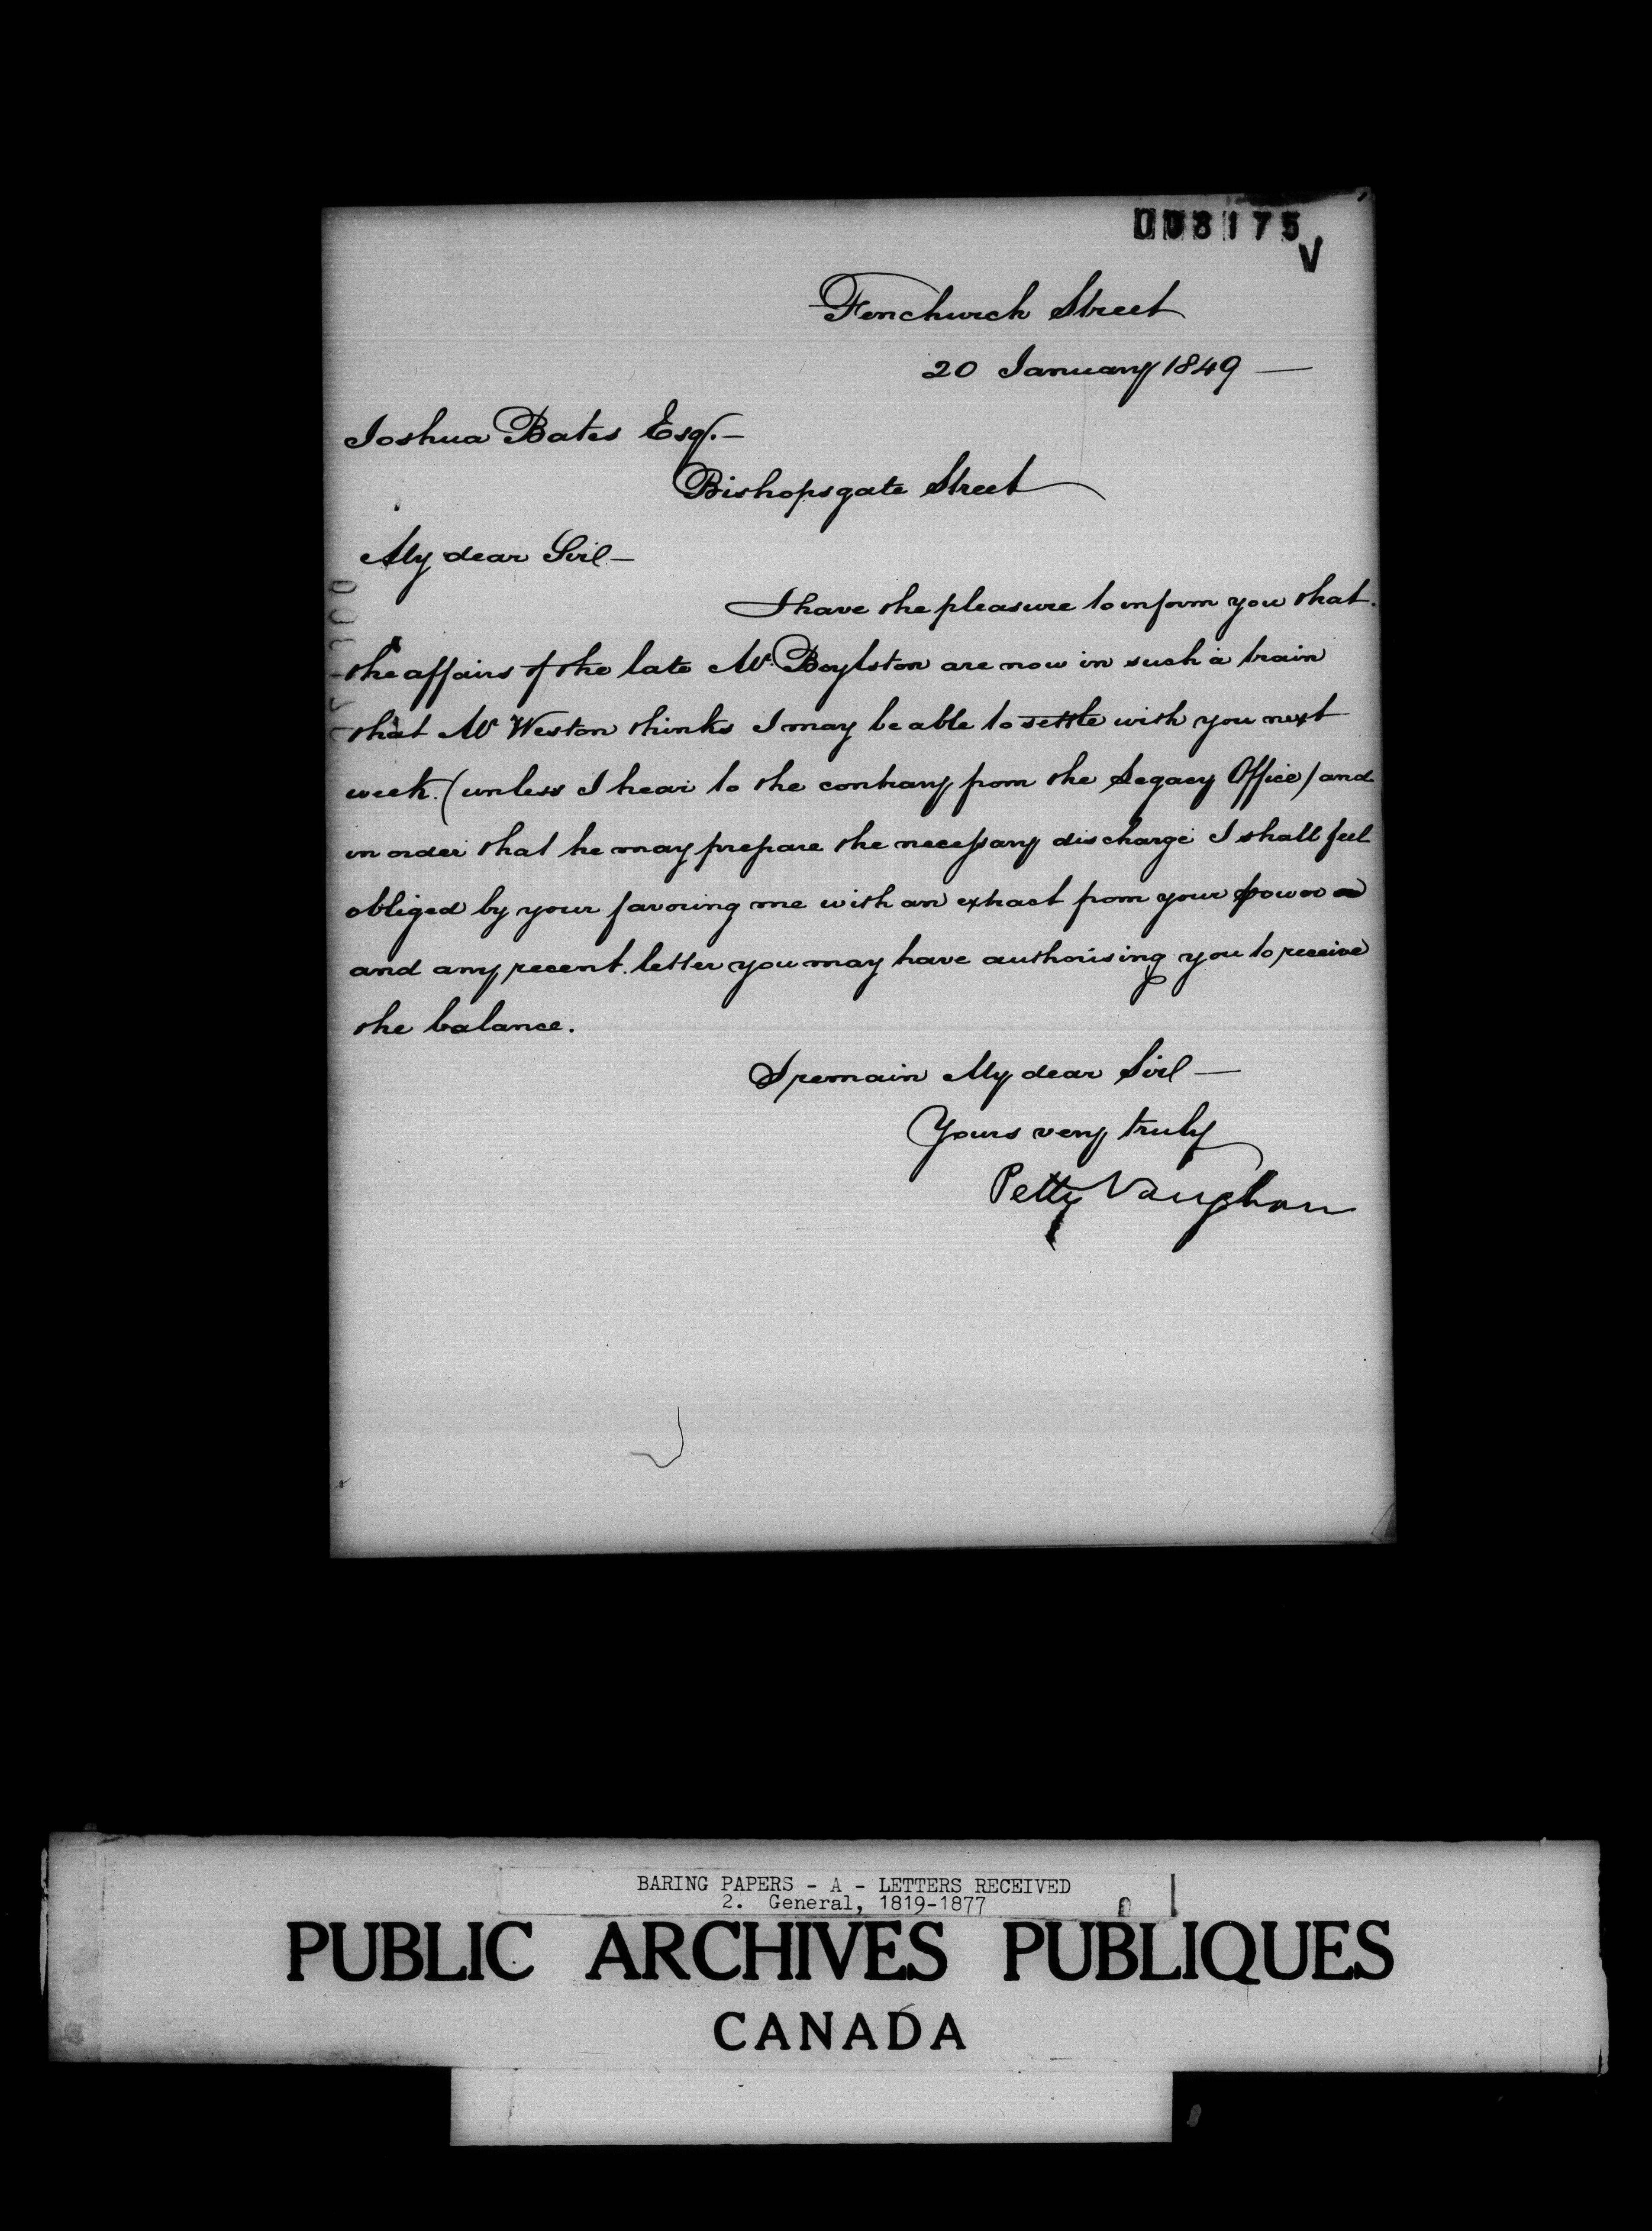 008175
V
Fenchurch Street
20 January 1849 —
Joshua Bates Esqr. —
Bishopsgate Street
My dear Sir —
I have the pleasure to inform you that
the affairs of the late Mr. Boylston are now in such a train
that Mr Weston thinks I may be able to settle with you next
week (unless I hear to the contrary from the Legacy Office) and
in order that he may prepare the necessary discharge I shall feel
obliged by your favoring me with an extract from your power
and any recent letter you may have authorising you to receive
the balance.
I remain My dear Sir —
Yours very truly
Petty Vaughan
BARING PAPERS - A - LETTERS RECEIVED
2. General, 1819-1877
PUBLIC ARCHIVES PUBLIQUES
CANADA